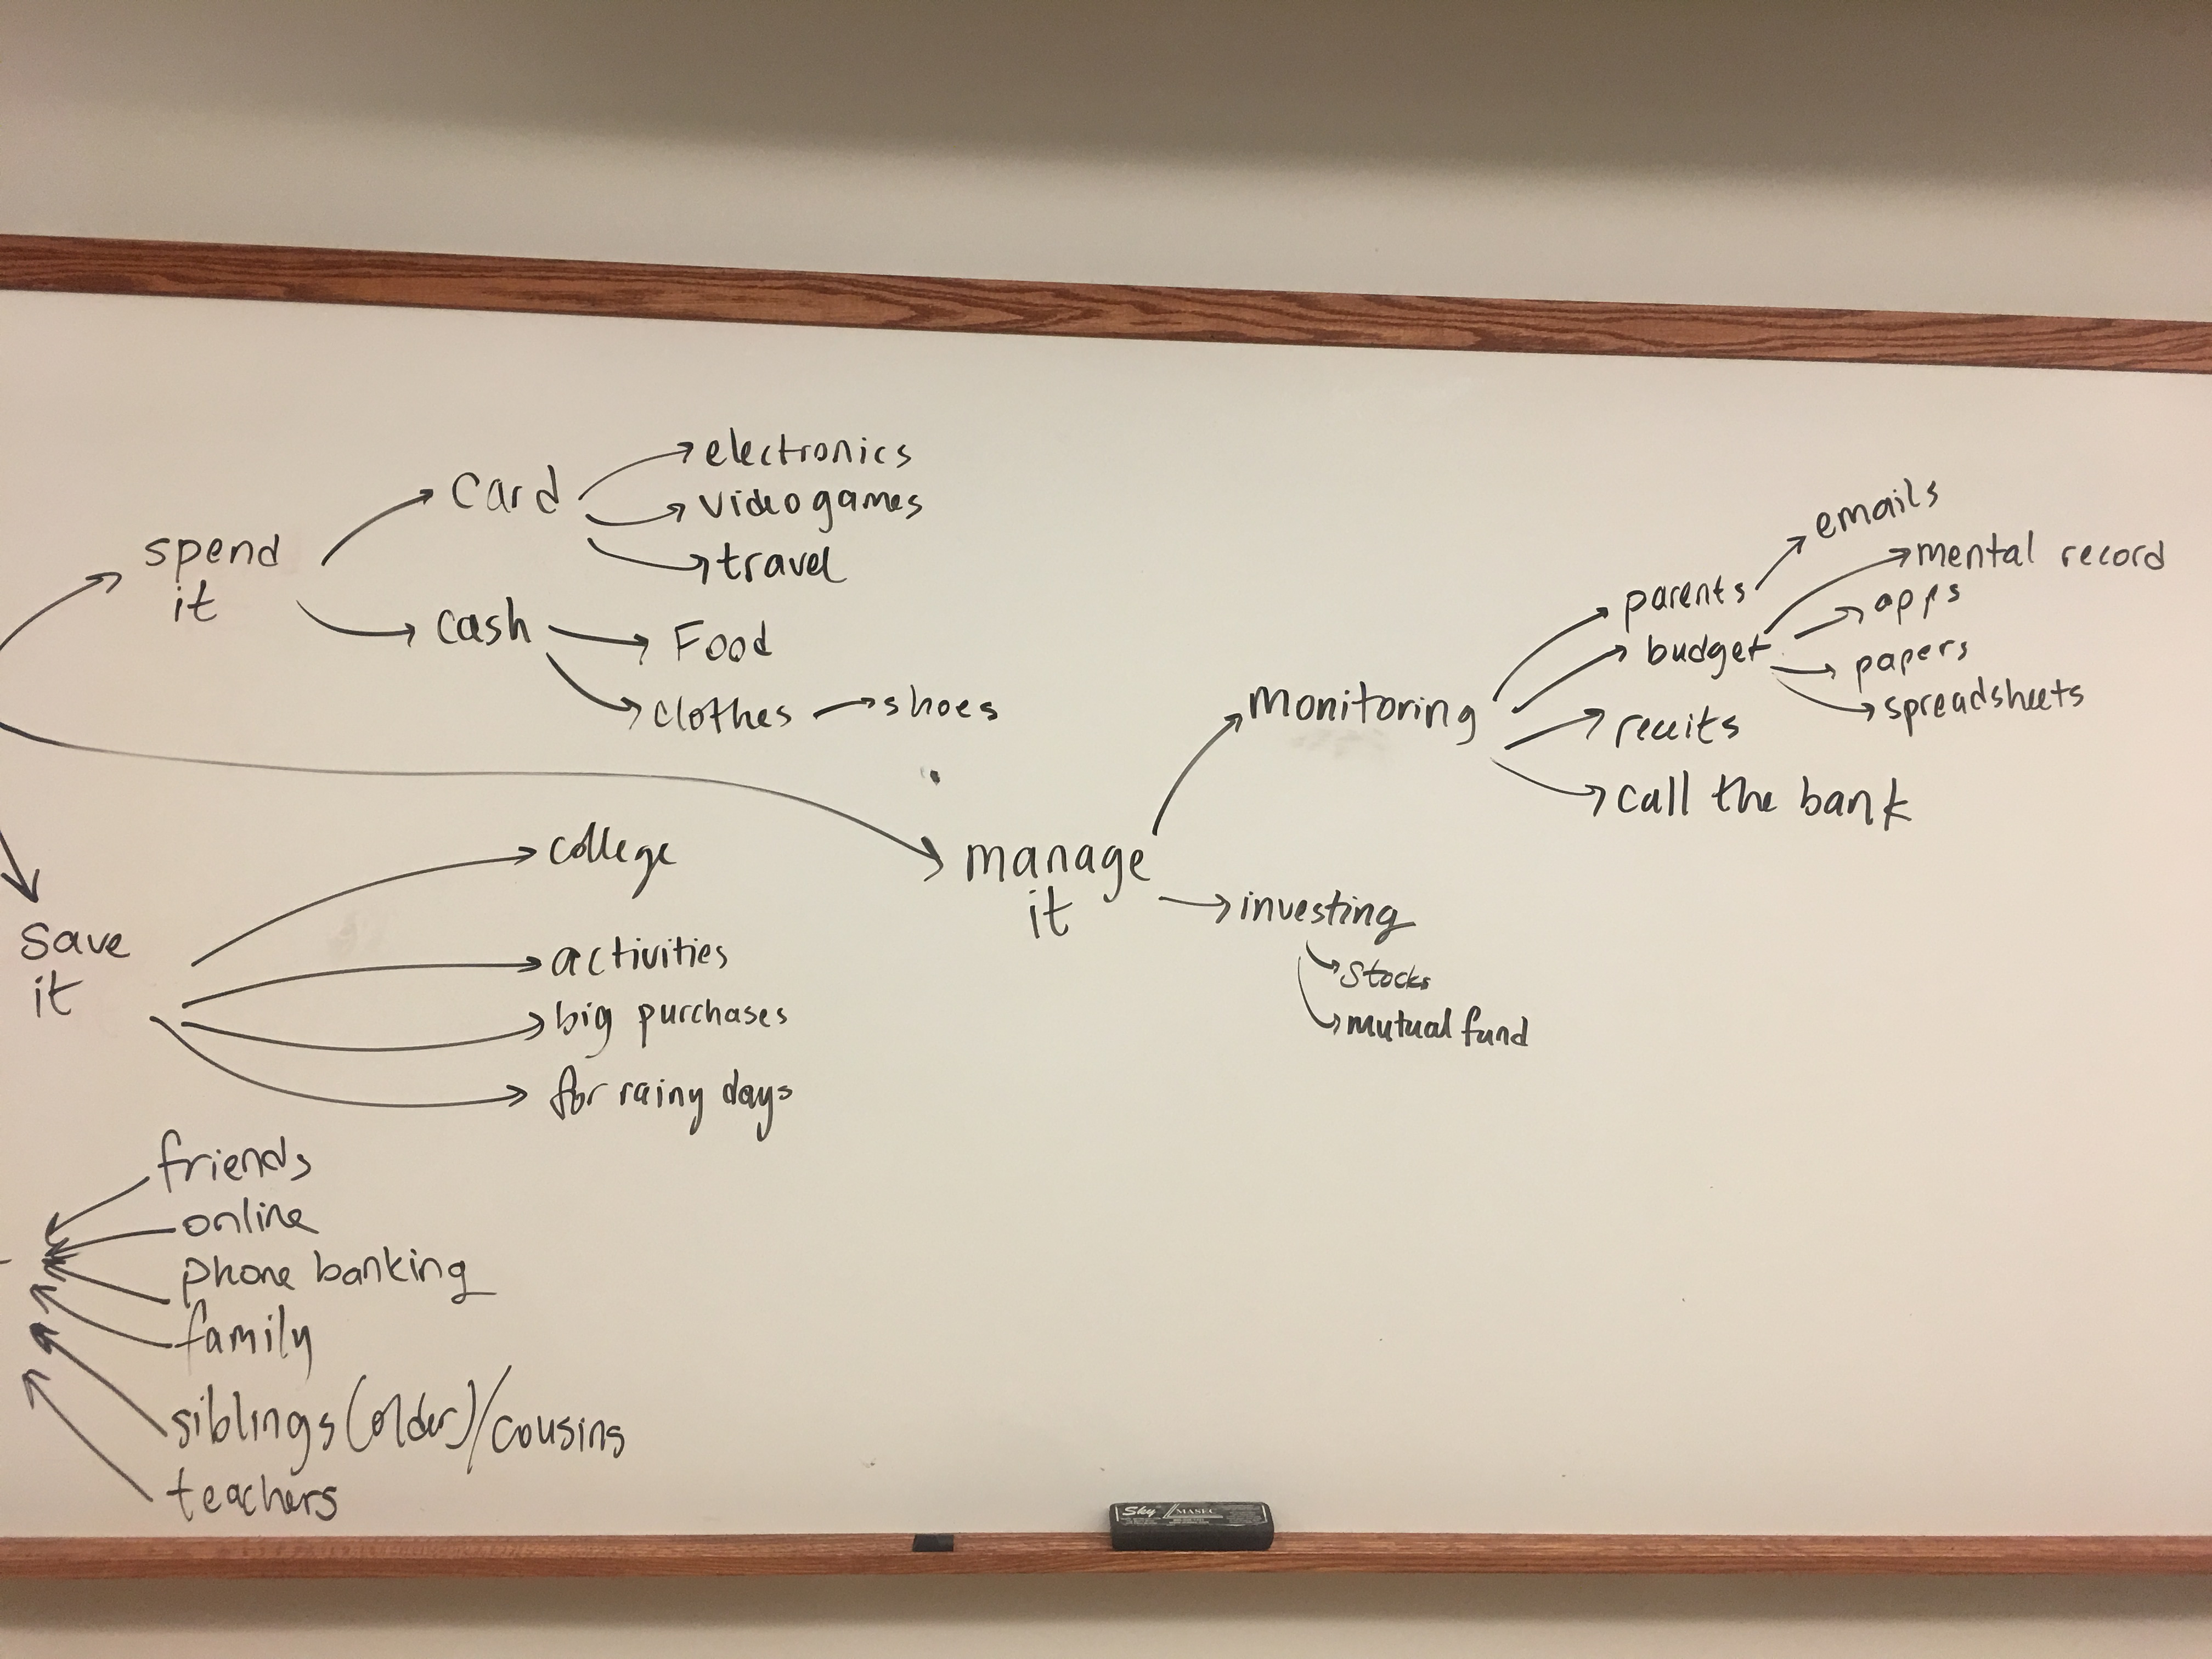 spend
it
card
electronics
video games
travel
cash
Food
clothes
shoes
save
it
college
activities
big purchases
for rainy days
manage
it
monitoring
parents
emails
budget
mental record
apps
papers
spreadsheets
receits
call the bank
investing
stocks
mutual fund
friends
online
phone banking
family
siblings (older)/cousins
teachers
Sky